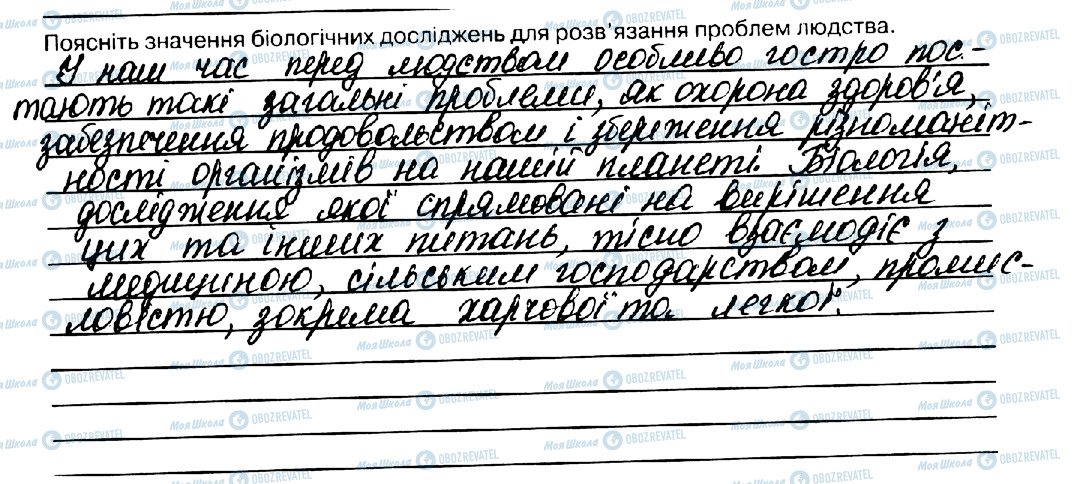 Поясніть значення біологічних досліджень для розв'язання проблем людства.
У наш час перед людством особливо гостро пос-
тають такі загальні проблеми, як охорона здоров'я,
забезпечення продовольством і збереження різноманіт-
ності організмів на нашій планеті. Біологія,
дослідження якої спрямовані на вирішення
цих та інших питань, тісно взаємодіє з
медициною, сільським господарством, промис-
ловістю, зокрема харчової та легкої.